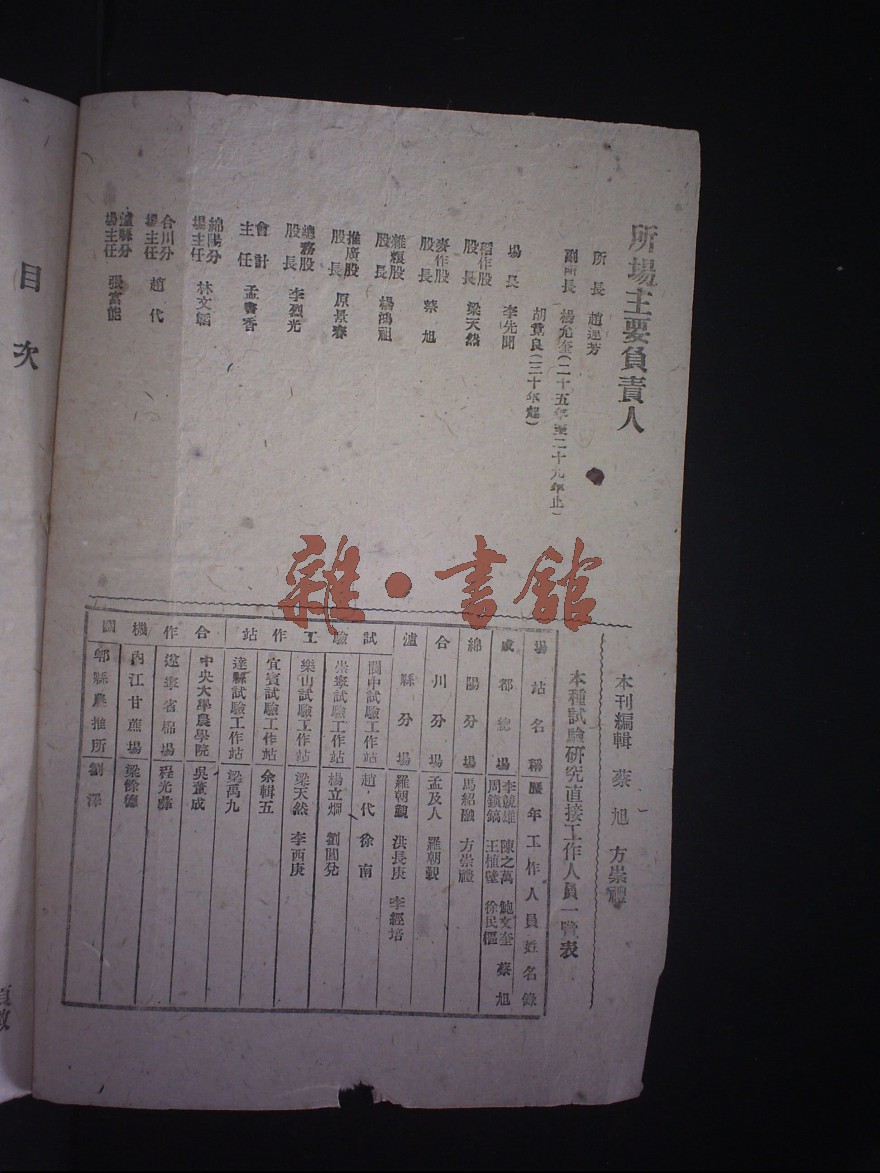 所場主要負責人
所長 趙連芳
副所長 楊允奎(二十五年至二十九年止)
胡竟良(三十年起)
場長 李先聞
稻作股股長 梁天然
麥作股股長 蔡旭
雜糧股股長 楊鴻祖
推廣股股長 原景春
總務股股長 李烈光
會計主任 孟書香
綿陽分場主任 林文
合川分場主任 趙代
瀘縣分場主任 張富能
本刊編輯 蔡旭 方崇禮
本種試驗研究直接工作人員一覽表
場站名稱 歷年工作人員姓名錄
成都總場 李競雄 陳之萬 鮑文奎 蔡旭
周鎮鎬 王植璧 徐民樞
綿陽分場 馬紹融 方崇禮
合川分場 孟及人 羅朝覲
瀘縣分場 羅朝覲 洪長庚 李經培
試驗工作站
閬中試驗工作站 趙代 徐南
崇寧試驗工作站 楊立炯 劉閩兌
樂山試驗工作站 梁天然 李酉庚
宜賓試驗工作站 余輯五
達縣試驗工作站 梁萬九
合作機關
中央大學農學院 吳董成
遼寧省棉場 程光彝
內江甘蔗場 梁餘德
郫縣農推所 劉澤
目次
頁數
雜·書館